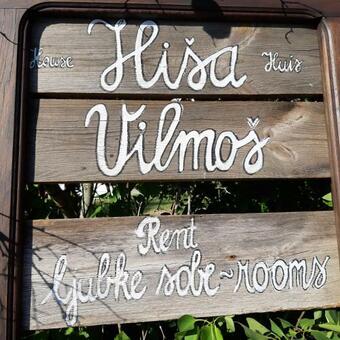 House Hiša Huis
Vilmoš
Rent
ljubke sobe~rooms